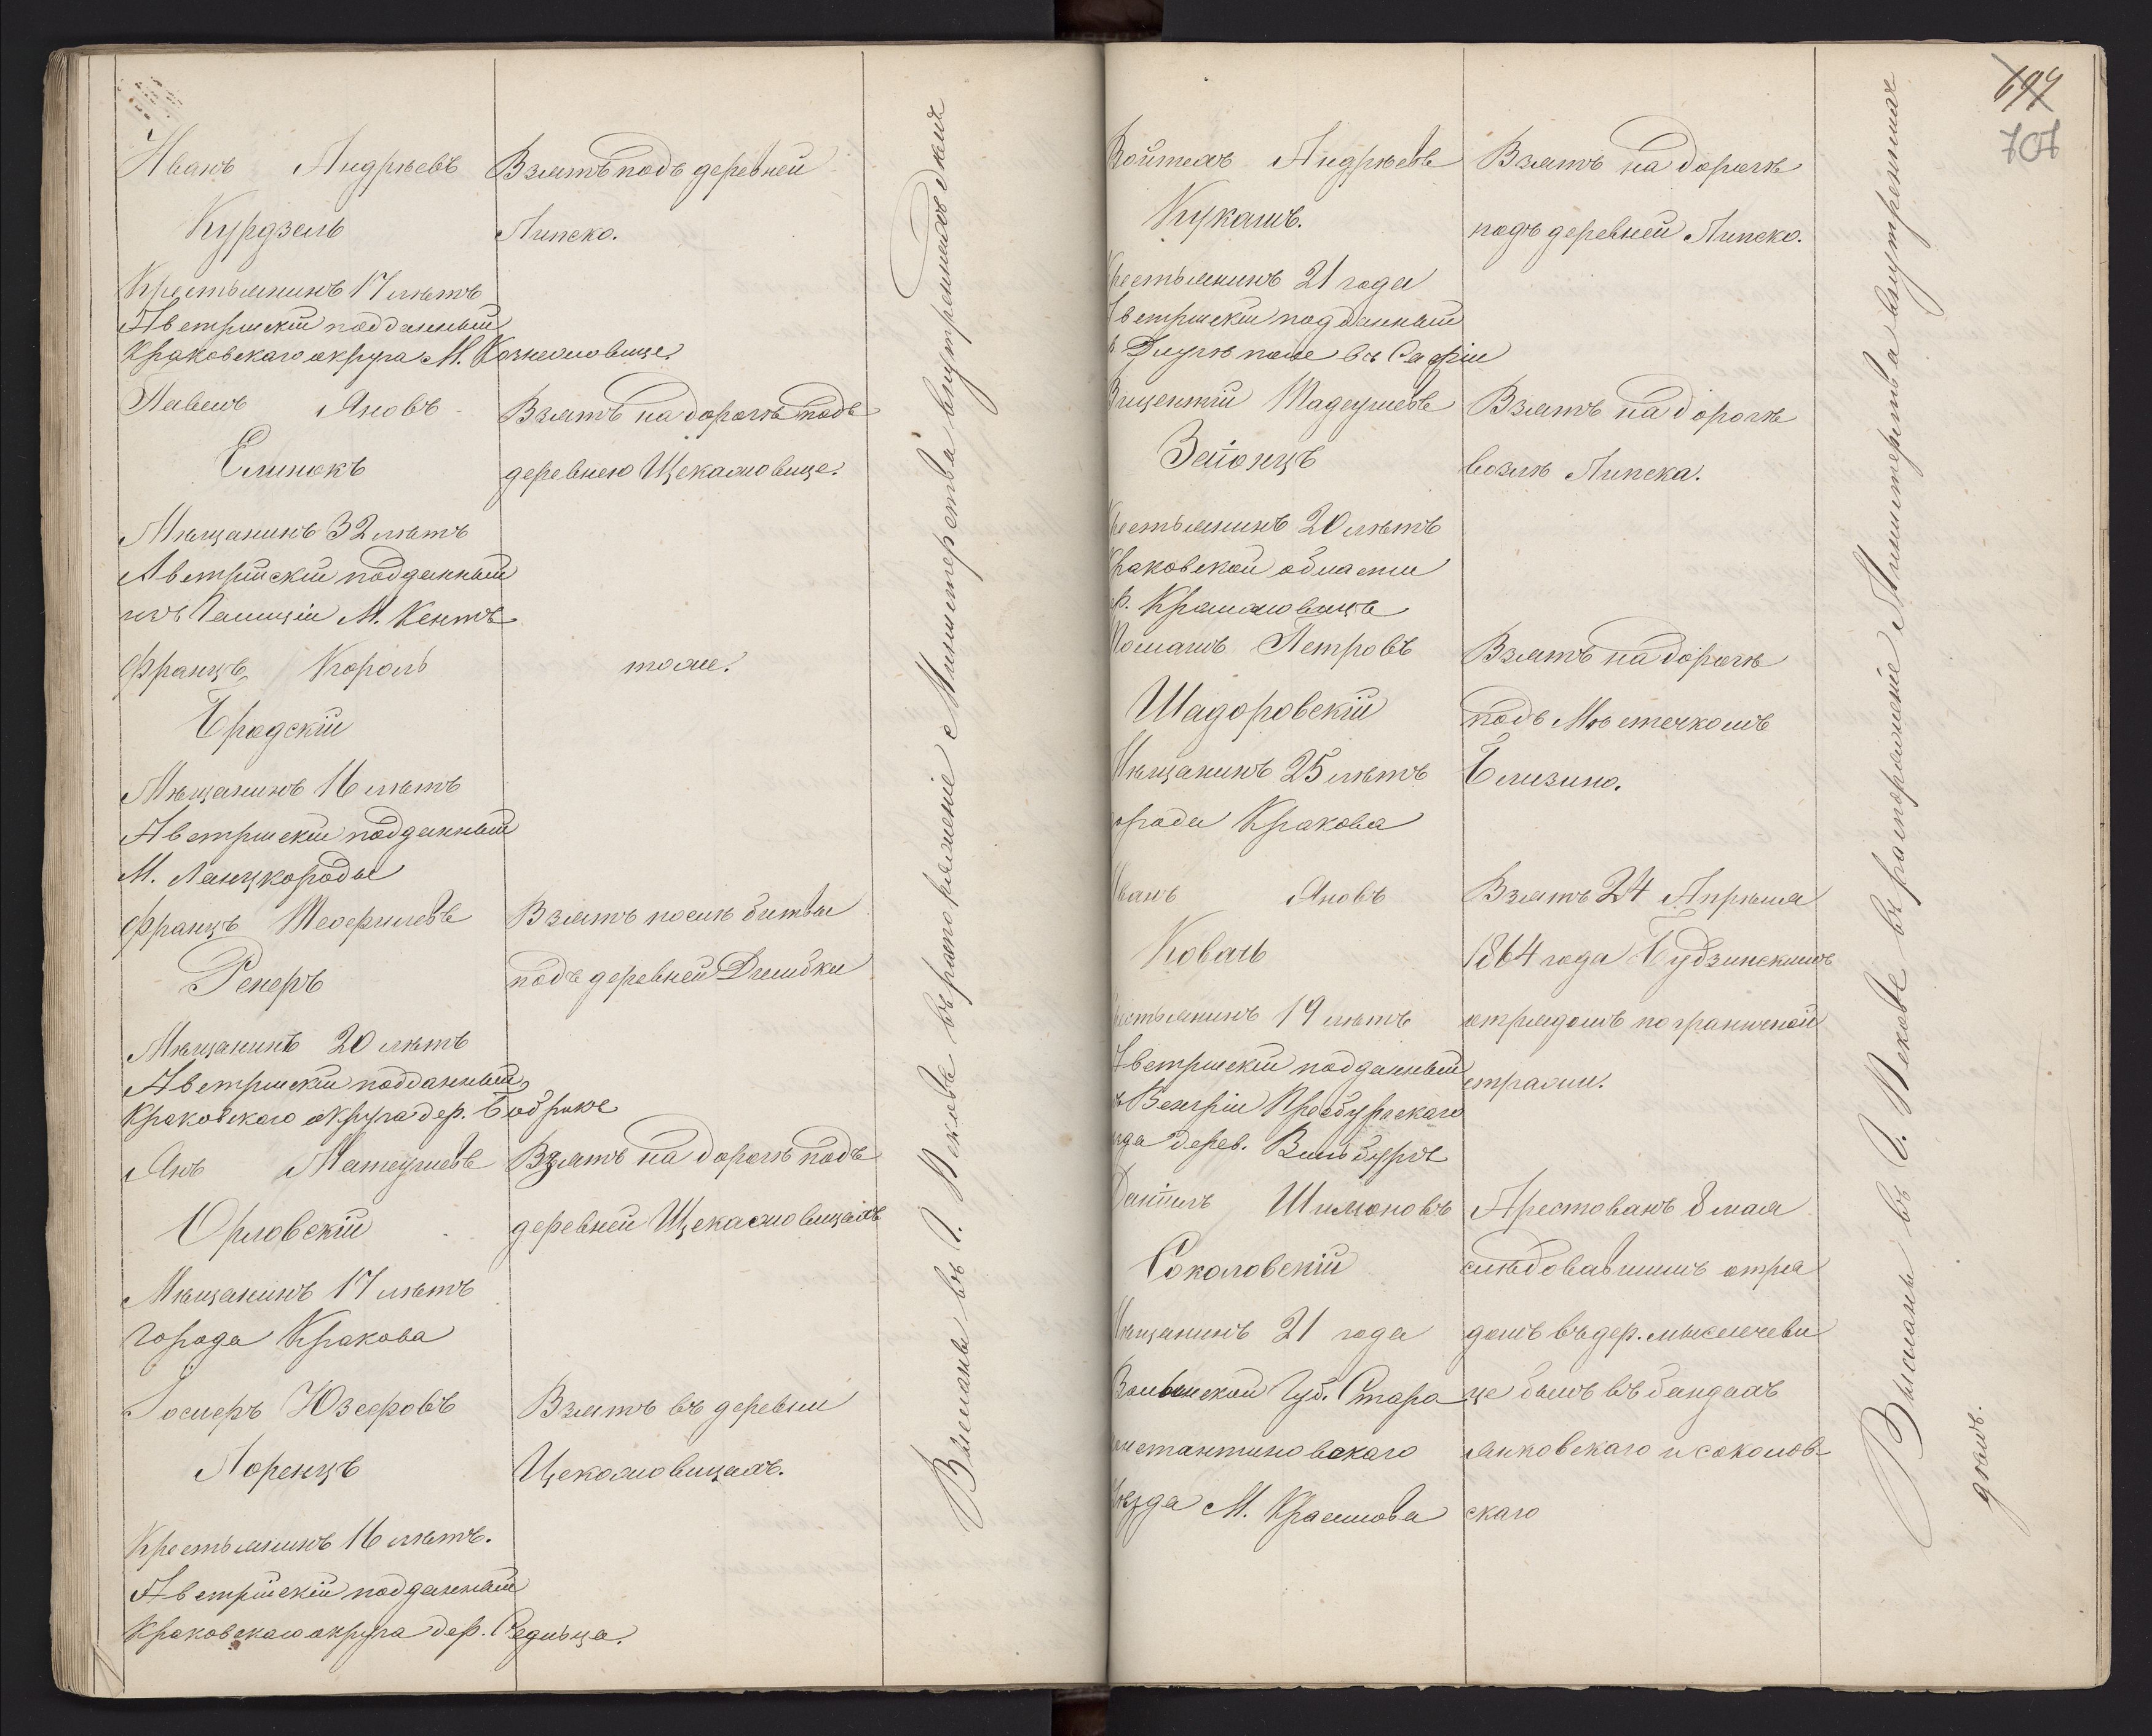 Иванъ Андрѣевъ
Курдзель
Крестьянинъ 17 лѣтъ
Австрійскій подданный
Краковскаго округа М.
Взятъ подъ деревней
Липско.
Павелъ Яновъ
Елинекъ
Мѣщанинъ 32 лѣтъ
Австрійскій подданный
изъ Галиціи М. Кентъ
Взятъ на дорогѣ подъ
деревнею Щекажовице.
Францъ Король
Бродскій
Мѣщанинъ 16 лѣтъ
Австрійскій подданный
М. Ланцкороды
тоже.
Францъ Теофилевъ
Рекеръ
Мѣщанинъ 20 лѣтъ
Австрійскій подданный
Краковскаго округа дер. Бобрже
Взятъ послѣ битвы
подъ деревней
Янъ Матеушевъ
Орловскій
Мѣщанинъ 17 лѣтъ
города Кракова
Взятъ на дорогѣ подъ
деревней Щекажовицахъ
Іосперъ Юзефовъ
Лоренцъ
Крестьянинъ 16 лѣтъ.
Австрійскій подданный
Краковскаго округа дер. Седльца.
Взятъ въ деревни
Цекажовицахъ.
Высланы въ Г. Псковъ въ распоряженіе Министерства внутреннихъ дѣлъ
699
707
Войтехъ Андрѣевъ
Кукашъ.
Крестьянинъ 21 года
Австрійскій подданный
Взятъ на дорогѣ
подъ деревней Липско.
Вицентій Тадеушевъ
Зайонцъ
Крестьянинъ 20 лѣтъ
Краковской области
Взятъ на дорогѣ
возлѣ Липска.
Томашъ Петровъ
Шадоровскій
Мѣщанинъ 25 лѣтъ
города Кракова
Взятъ на дорогѣ
подъ Мѣстечкомъ
Близино.
Иванъ Яновъ
Коваль
Крестьянинъ 19 лѣтъ
Австрійскій подданный
Венгріи Пресбургскаго
дерев.
Взятъ 24 Апрѣля
1864 года Будзинскимъ
отрядомъ пограничной
стражи.
Даніилъ Шимоновъ
Соколовскій
Мѣщанинъ 21 года
Волынской Губ. Старо
константиновскаго
уѣзда М. Красилова
Арестованъ 8 мая
слѣдовавшимъ отря
домъ въ дер. мыслечеви
це былъ въ бандахъ
янковскаго и соколов
скаго
Высланы въ Г. Псковъ въ распоряженіе Министерства внутреннихъ
дѣлъ.